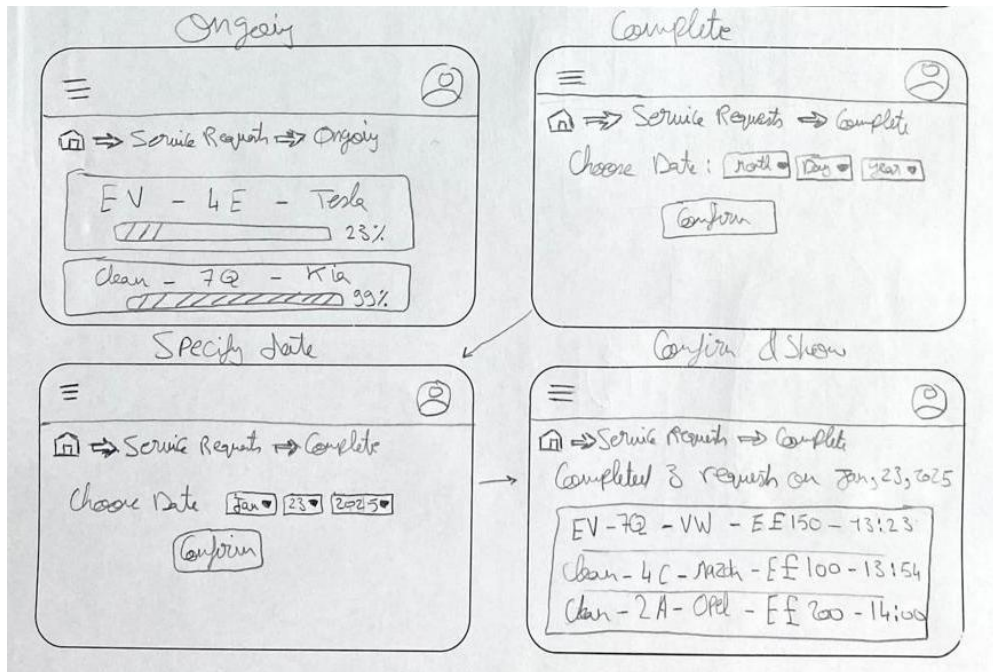 Ongoing
Service Requests Ongoing
EV - 4E - Tesla
23%
Clean - 7Q - Kia
99%
Complete
Service Requests Complete
Choose Date: Day Year
Confirm
Specify date
Service Requests Complete
Choose Date Jan 23 2025
Confirm
Confirm & Show
Service Requests Complete
Completed 3 request on Jan, 23, 2025
EV - 7Q - VW - E£150 - 13:23
Clean - 4C - - E£100 - 13:54
Clean - 2A - Opel - E£200 - 14:00